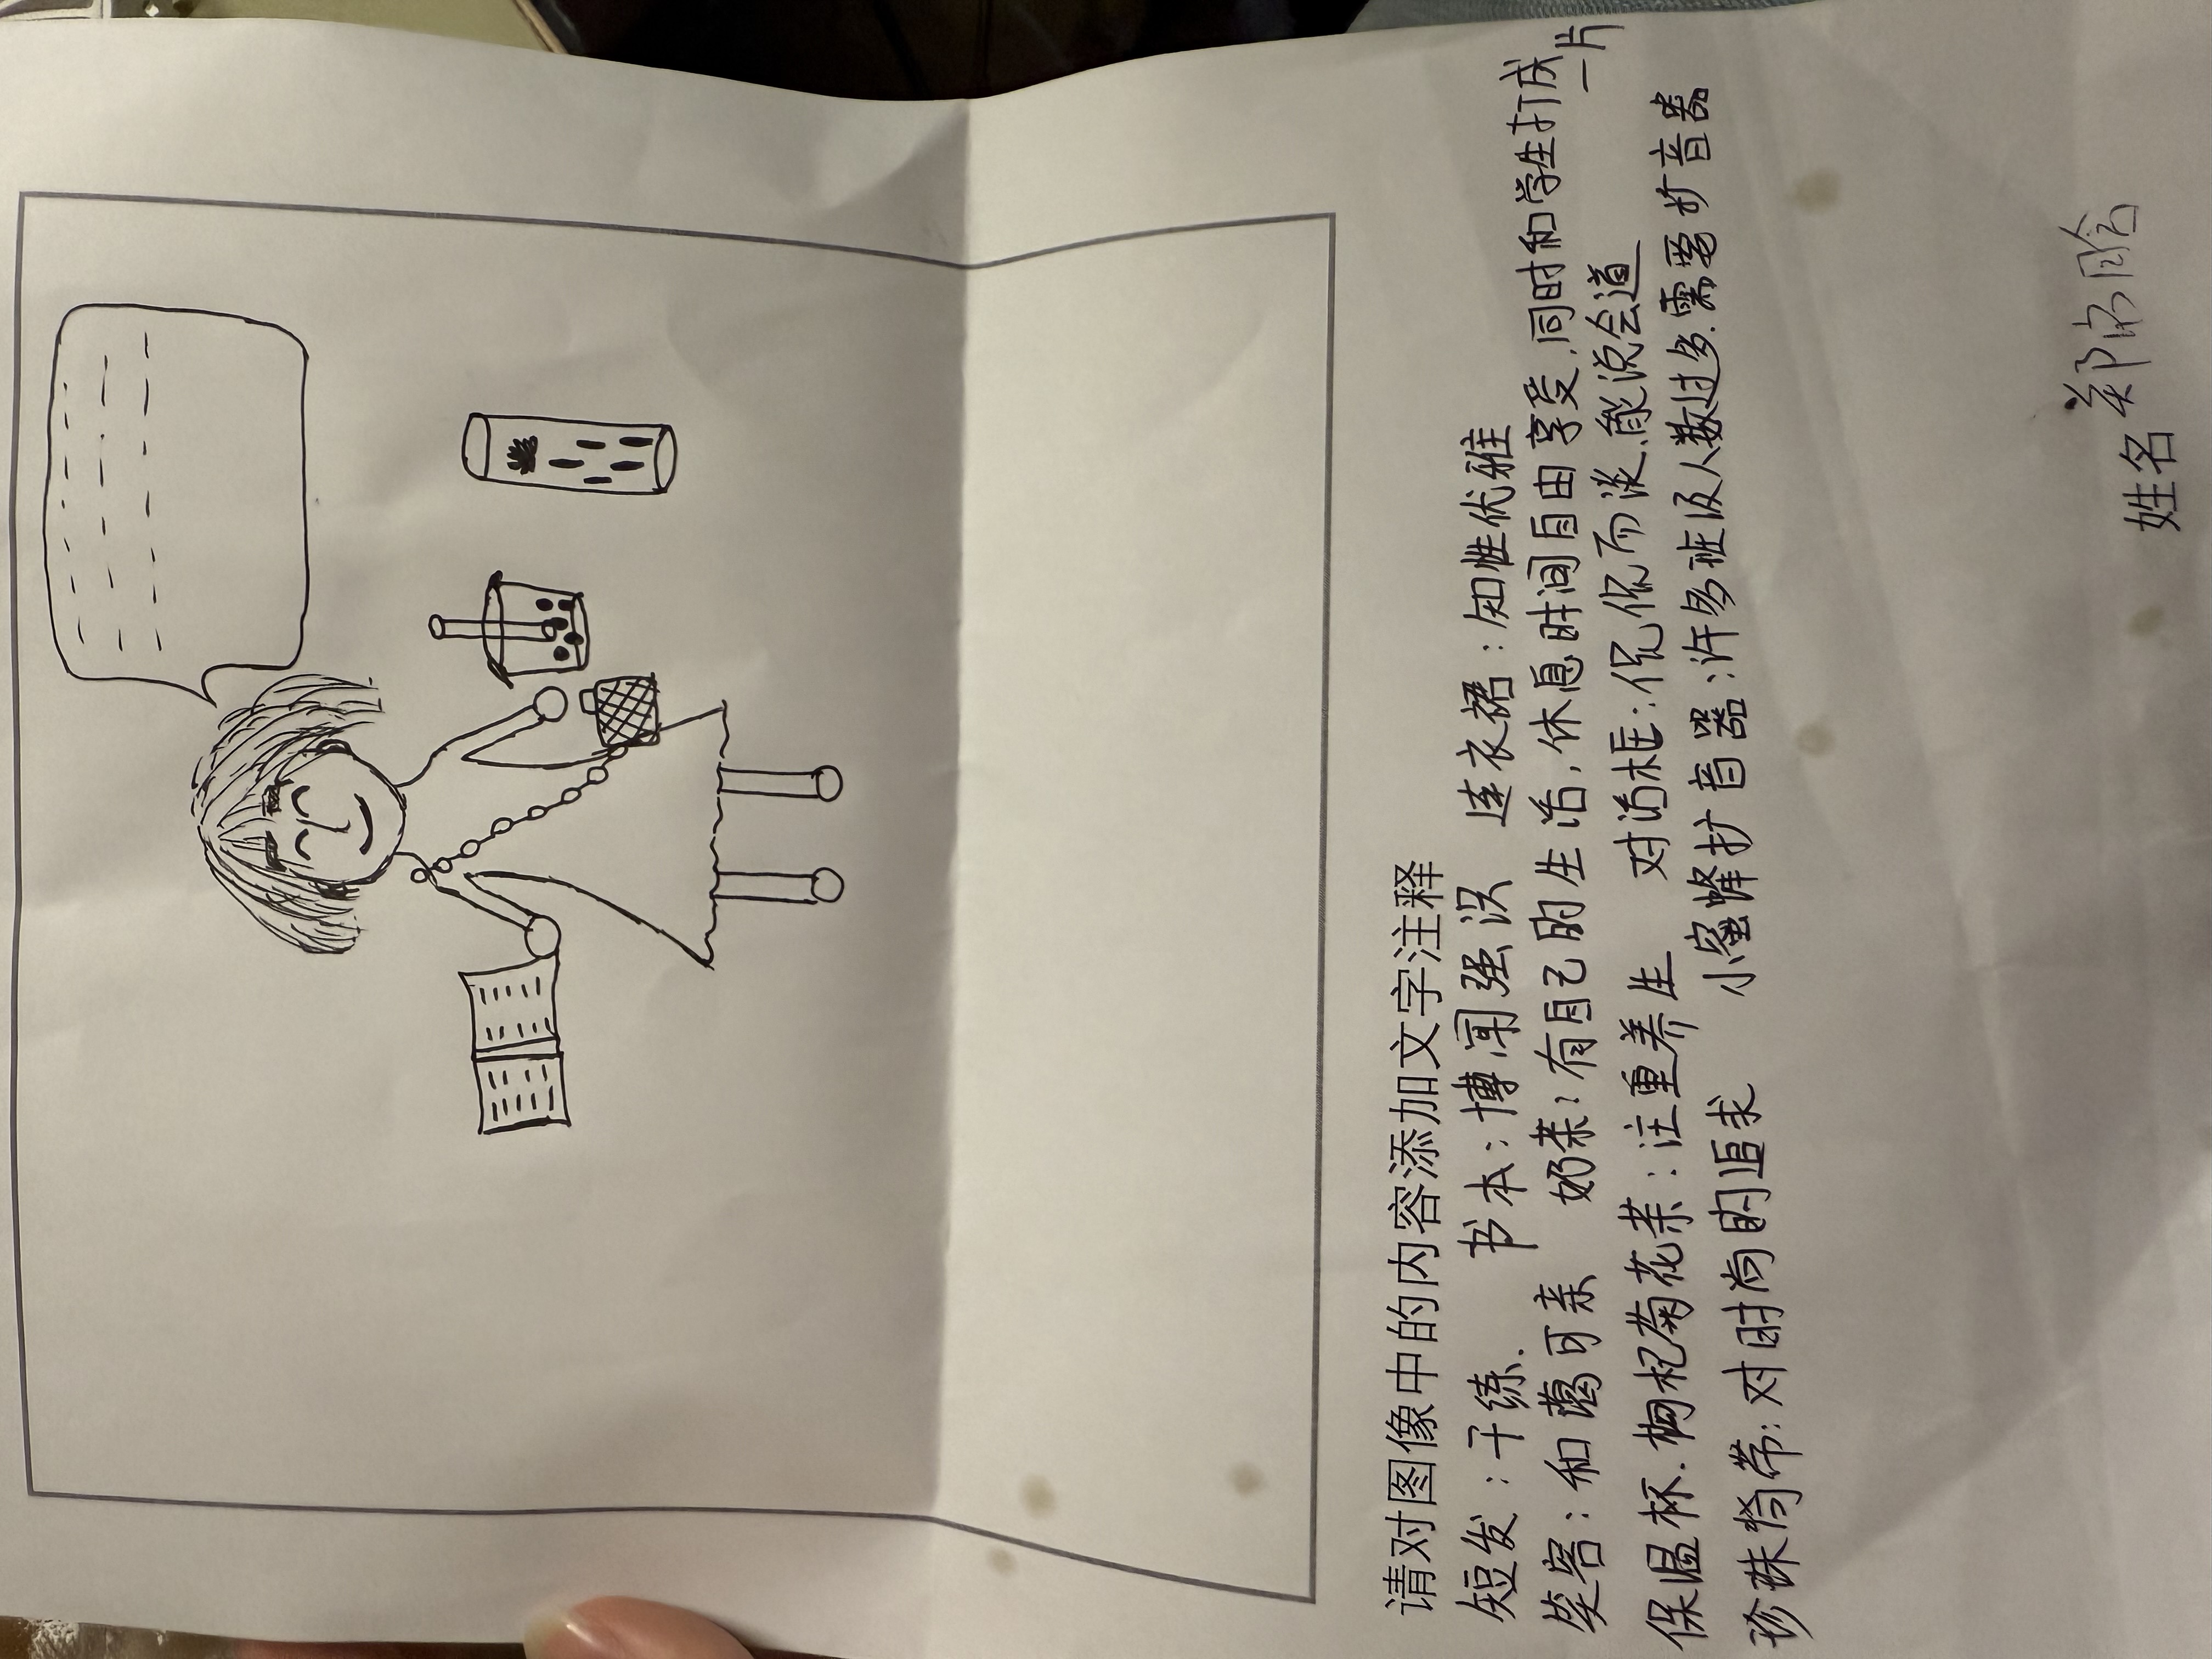 请对图像中的内容添加文字注释
短发：干练. 书本：博闻强识 连衣裙：知性优雅
笑容：和蔼可亲 奶茶：有自己的生活，休息时间自由享受，同时和学生打成一片
保温杯.枸杞菊花茶：注重养生 对话框：侃侃而谈、能说会道
珍珠挎带：对时尚的追求 小蜜蜂扩音器：许多班级人数过多.需要扩音器
姓名 郑